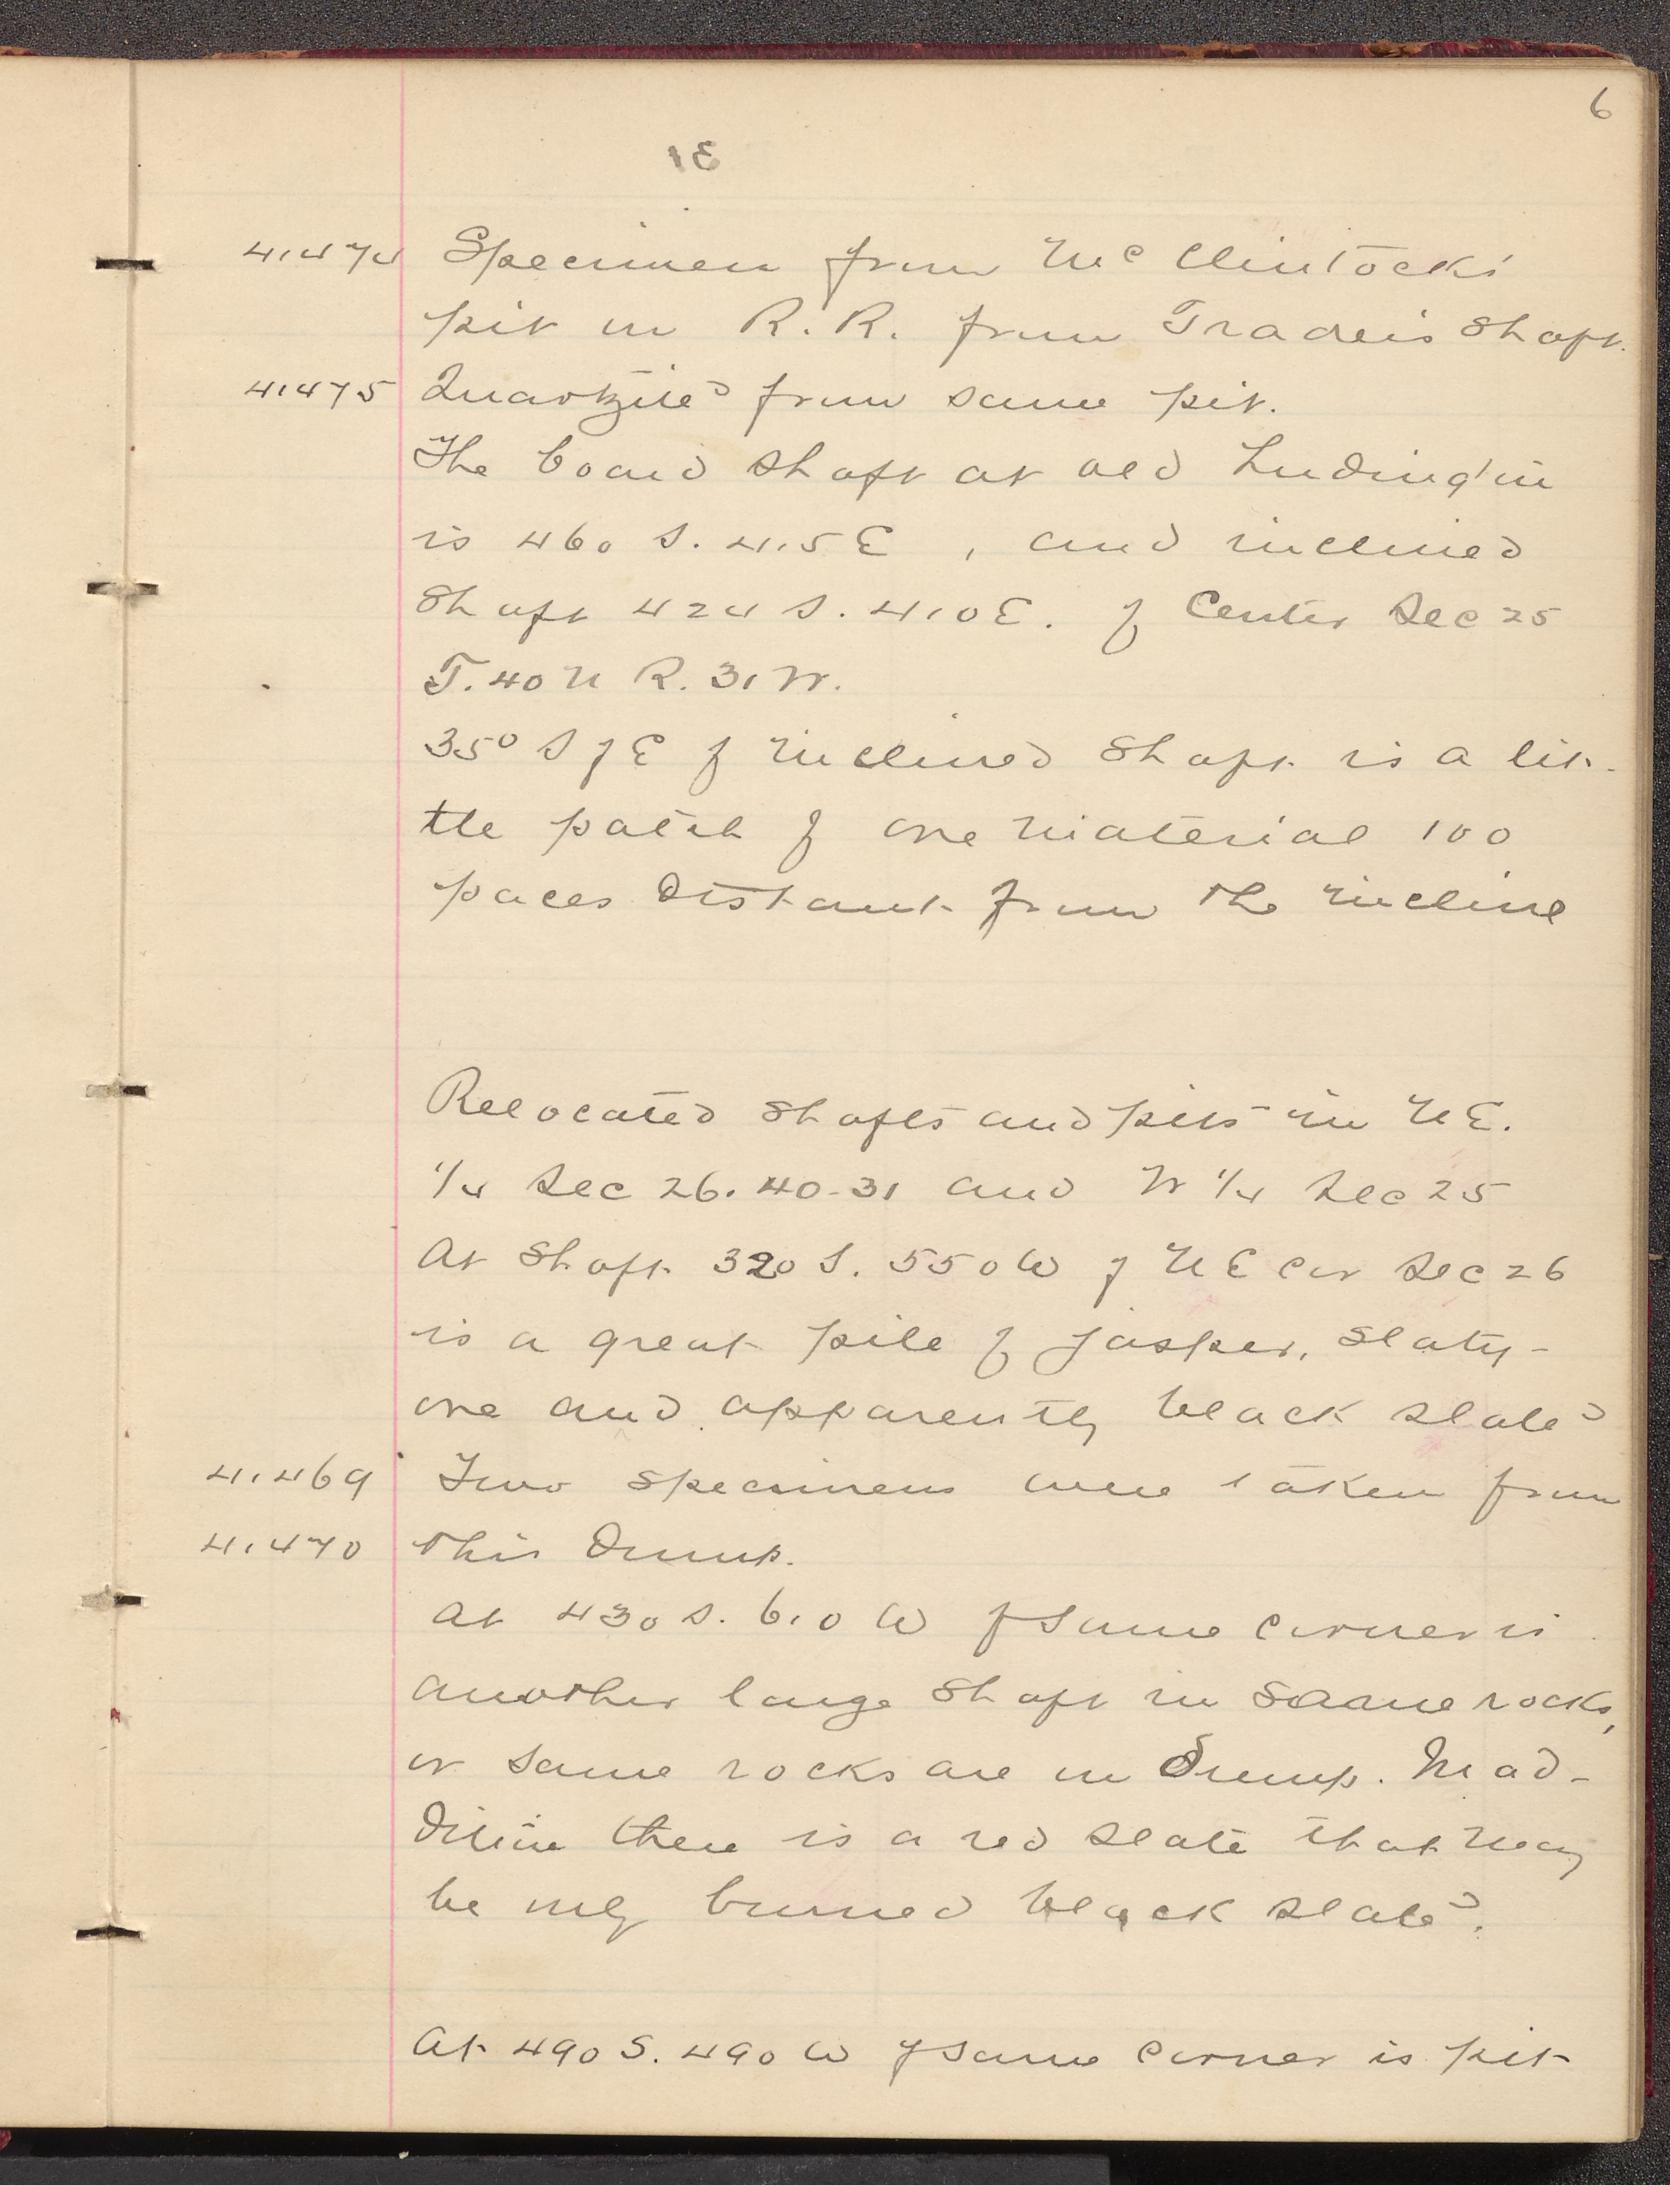 6
41474 Specimen from McClintocks
pit in R.R. from Traders Shaft.
41475 Quartzite from same pit.
The board shaft at old Luding'tn
is 460 S. 415 E, and inclined
Shaft 424 S. 410 E. of Center Sec 25
T. 40 N R. 31 W.
35° S of E of inclined shaft is a lit-
tle patch of ore material 100
paces distant from the incline
Relocated shafts and pits in NE.
1/4 Sec 26. 40-31 and W 1/4 Sec 25
At Shaft 320 S. 550 W of NE cor Sec 26
is a great pile of jasper, slaty-
ore and apparently black slate
41469 Two specimens were taken from
41470 this dump.
At 430 S. 610 W of same corner is
another large shaft in same rocks,
or same rocks are in dump. In ad-
dition there is a red slate that may
be only burned black slate.
At 490 S. 490 W of same corner is pit